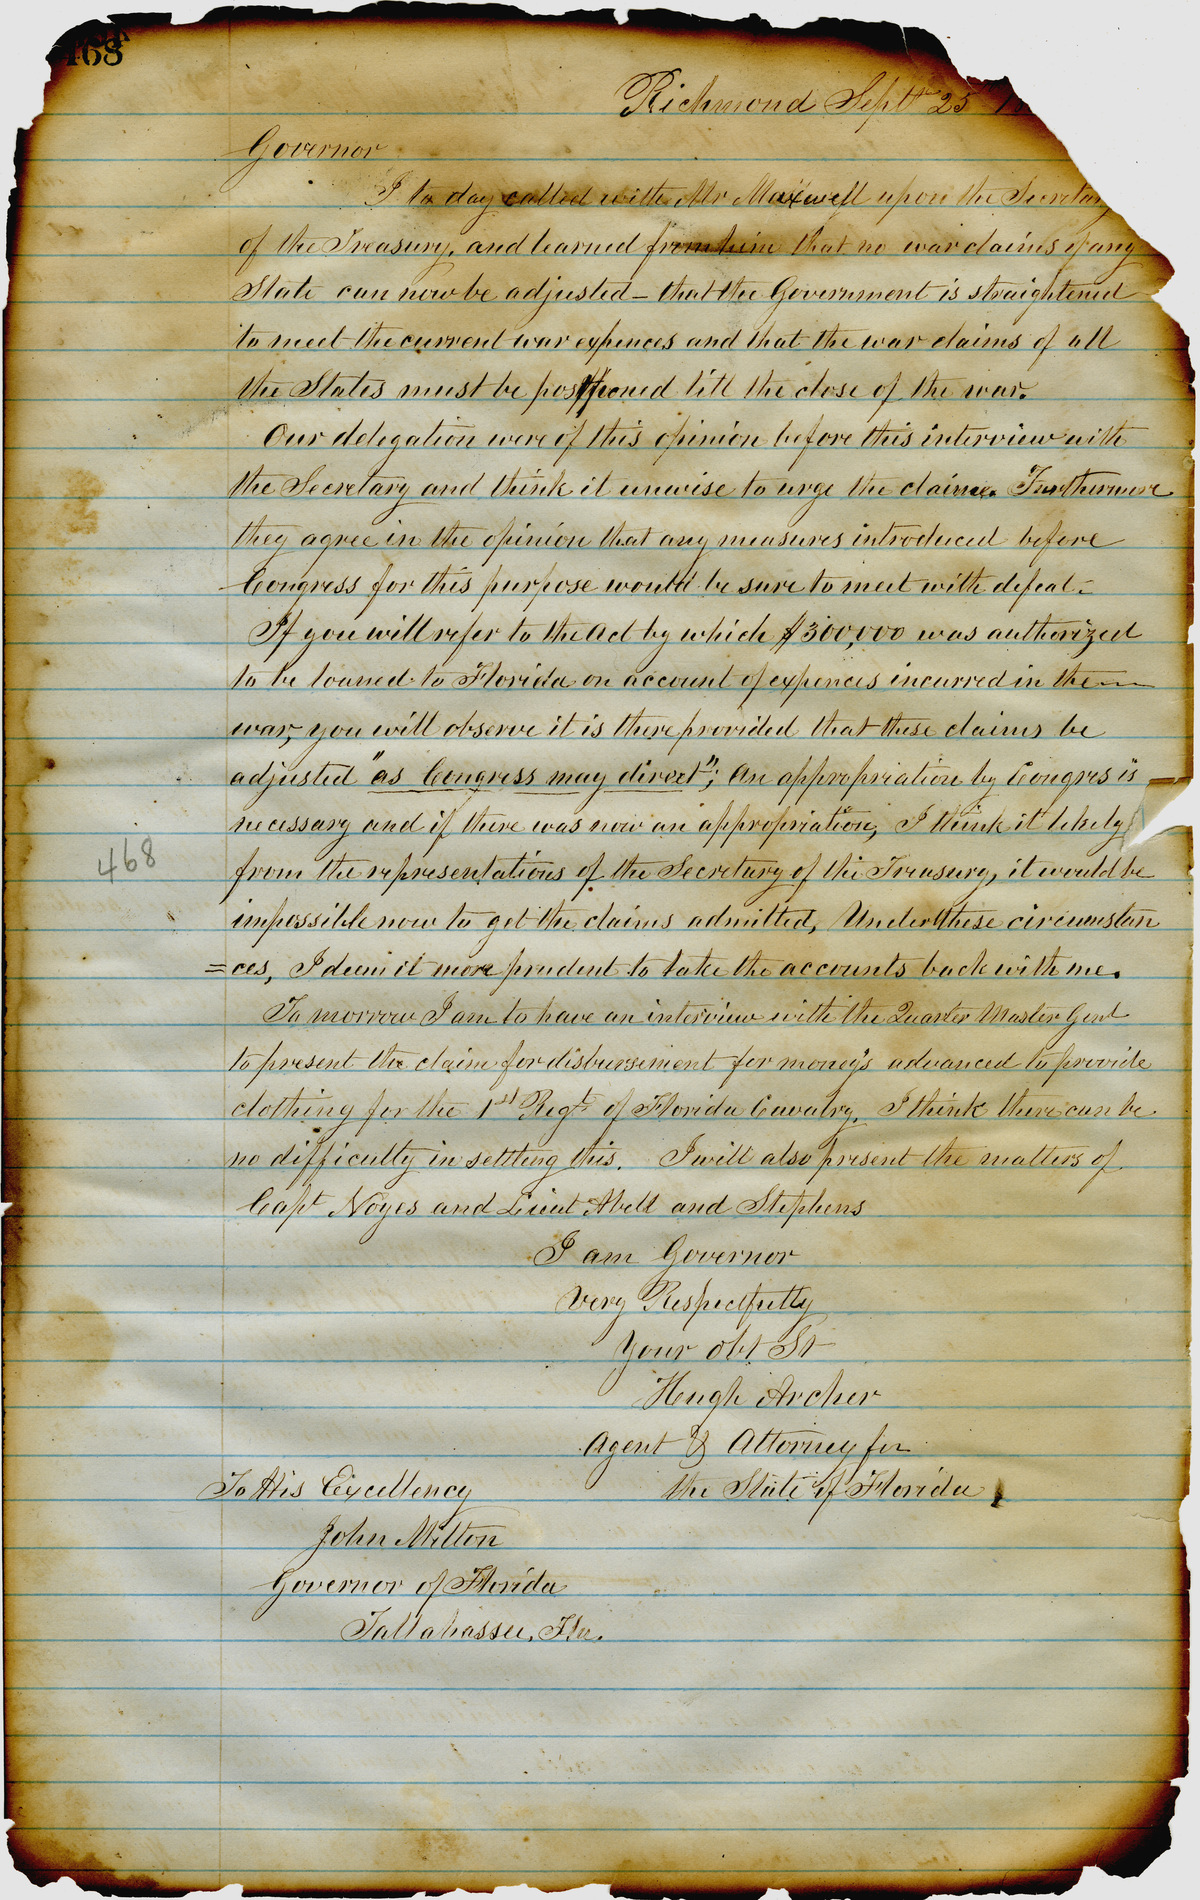 468
Richmond Sept 25 1
Governor
I to day called with Mr Maxwell upon the Secretary
of the Treasury, and learned from him that no war claims of any
State can now be adjusted – that the Government is straightened
to meet the current war expences and that the war claims of all
the States must be postponed till the close of the war.
Our delegation were of this opinion before this interview with
the Secretary and think it unwise to urge the claims. Furthermore
they agree in the opinion that any measures introduced before
Congress for this purpose would be sure to meet with defeat –
If you will refer to the Act by which $300,000 was authorized
to be loaned to Florida on account of expences incurred in the —
war, you will observe it is there provided that these claims be
adjusted "as Congress may direct"; An appropriation by Congres is
necessary and if there was now an appropriation, I think it likely
468
from the representations of the Secretary of the Treasury, it would be
impossible now to get the claims admitted, Under these circumstan
=ces, I deem it more prudent to take the accounts back with me.
To morrow I am to have an interview with the Quarter Master Genl
to present the claim for disbursement for money's advanced to provide
clothing for the 1st Regt of Florida Cavalry. I think there can be
no difficulty in settling this. I will also present the matters of
Capt Noyes and Lieut Abell and Stephens
I am Governor
Very Respectfully
Your Obt St
Hugh Archer
Agent & Attorney for
the State of Florida
To His Excellency
John Milton
Governor of Florida
Tallahassee, Fla.